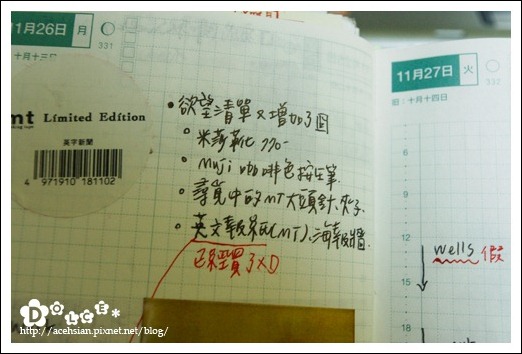 11月26日 月
331
十月十三
mt Limited Edition
英字新聞
4 971910 181102
• 欲望清單又增加了
• 米菲靴 990-
• Muji 咖啡色按壓筆
• 尋覓中的MT大頭針、夾子
• 英文報紙(MT)、海報牆
已經買了XD
11月27日 火
332
旧:十月十四日
6
9
12
wells 假
13
15
18
DOLCE*
http://acehsian.pixnet.net/blog/